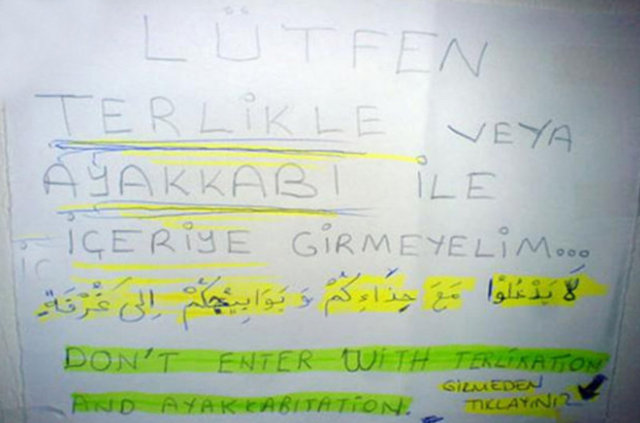 LÜTFEN
TERLİKLE VEYA
AYAKKABI İLE
İÇERİYE GİRMEYELİM...
لَا يَدْخُلُوا مَعَ حِذَاءِكُمْ وَ بَوَابِيجِكُمْ اِلى غُرْفَةِ
DON'T ENTER WITH TERLİKATİON
AND AYAKKABITATİON.
GİRMEDEN
TIKLAYINIZ